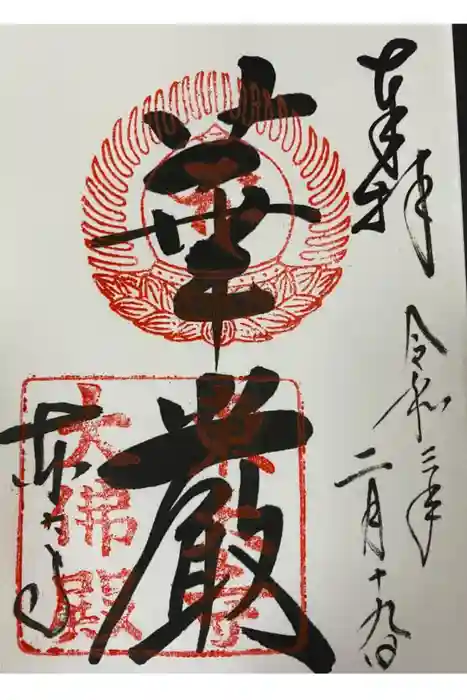 奉拝
令和三年
二月十九日
華厳
東大寺
東大寺
大佛殿